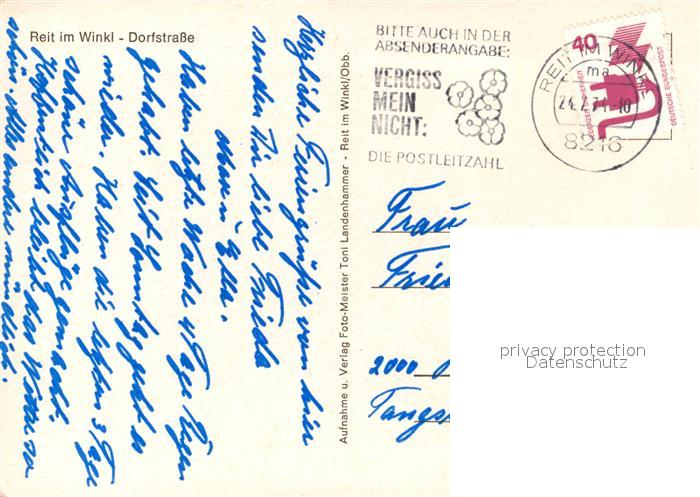 Reit im Winkl - Dorfstraße
Herzliche Feriengrüße von hier
senden Dir liebe Frieda
Ella.
Haben letzte Woche 4 Tage Regen
gehabt. Seit Sonntag geht es
wieder. Haben die letzten 3 Tage
schöne Ausflüge gemacht.
Hoffentlich bleibt das Wetter so
schön. Alles andere mündlich.
Aufnahme u. Verlag Foto-Meister Toni Landenhammer - Reit im Winkl/Obb.
BITTE AUCH IN DER
ABSENDERANGABE:
VERGISS
MEIN
NICHT:
DIE POSTLEITZAHL
REIT IM WINKL
ma
8216
40
JEDERZEIT SICHERHEIT
DEUTSCHE BUNDESPOST
Frau
2000
privacy protection
Datenschutz